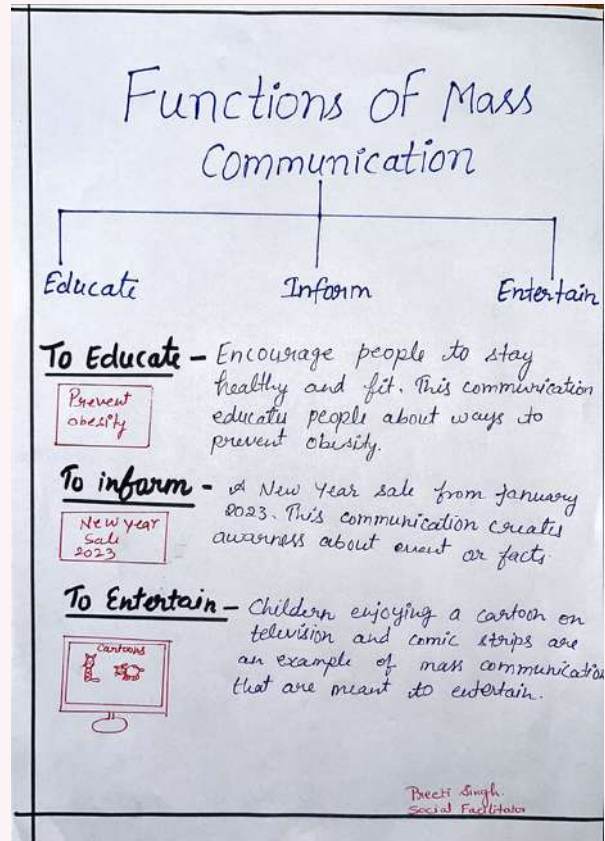 Functions Of Mass
Communication
Educate
Inform
Entertain
To Educate – Encourage people to stay
healthy and fit. This communication
educates people about ways to
prevent obesity.
Prevent
obesity
To inform - A New Year sale from January
2023. This communication creates
awarness about event or facts.
New year
Sale
2023
To Entertain – Childern enjoying a cartoon on
television and comic strips are
an example of mass communication
that are meant to entertain.
Cartoons
Preeti Singh.
Social Facilitator